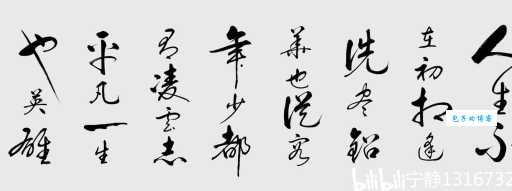 人生不
在初相逢
洗尽鉛
華也從容
年少都
有凌雲志
平凡一生
也英雄
包子的博客
bilibili 宁静1316732